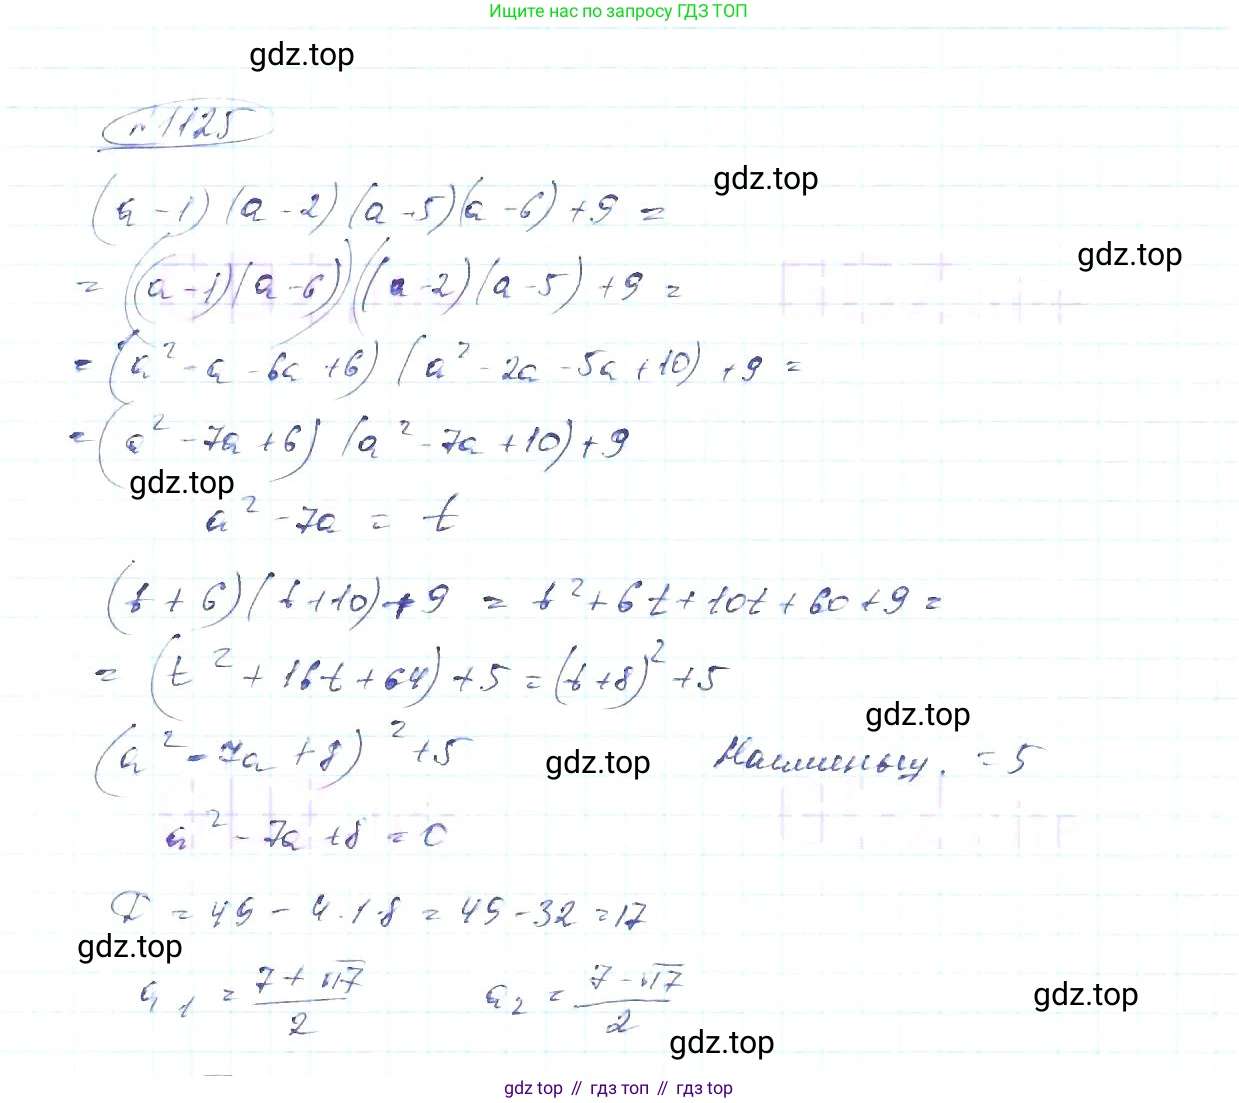 Ищите нас по запросу ГДЗ ТОП
gdz.top
№1125
(a-1)(a-2)(a-5)(a-6)+9=
gdz.top
gdz.top
=((a-1)(a-6))((a-2)(a-5)+9=
=(a²-a-6a+6)(a²-2a-5a+10)+9=
=(a²-7a+6)(a²-7a+10)+9
gdz.top
a²-7a=t
(t+6)(t+10)+9=t²+6t+10t+60+9=
=(t²+16t+64)+5=(t+8)²+5
gdz.top
(a²-7a+8)²+5
gdz.top
=5
a²-7a+8=0
D=49-4·1·8=49-32=17
gdz.top
a₁=(7+√17)/2 a₂=(7-√17)/2
gdz.top
gdz.top
gdz top // гдз топ // гдз top